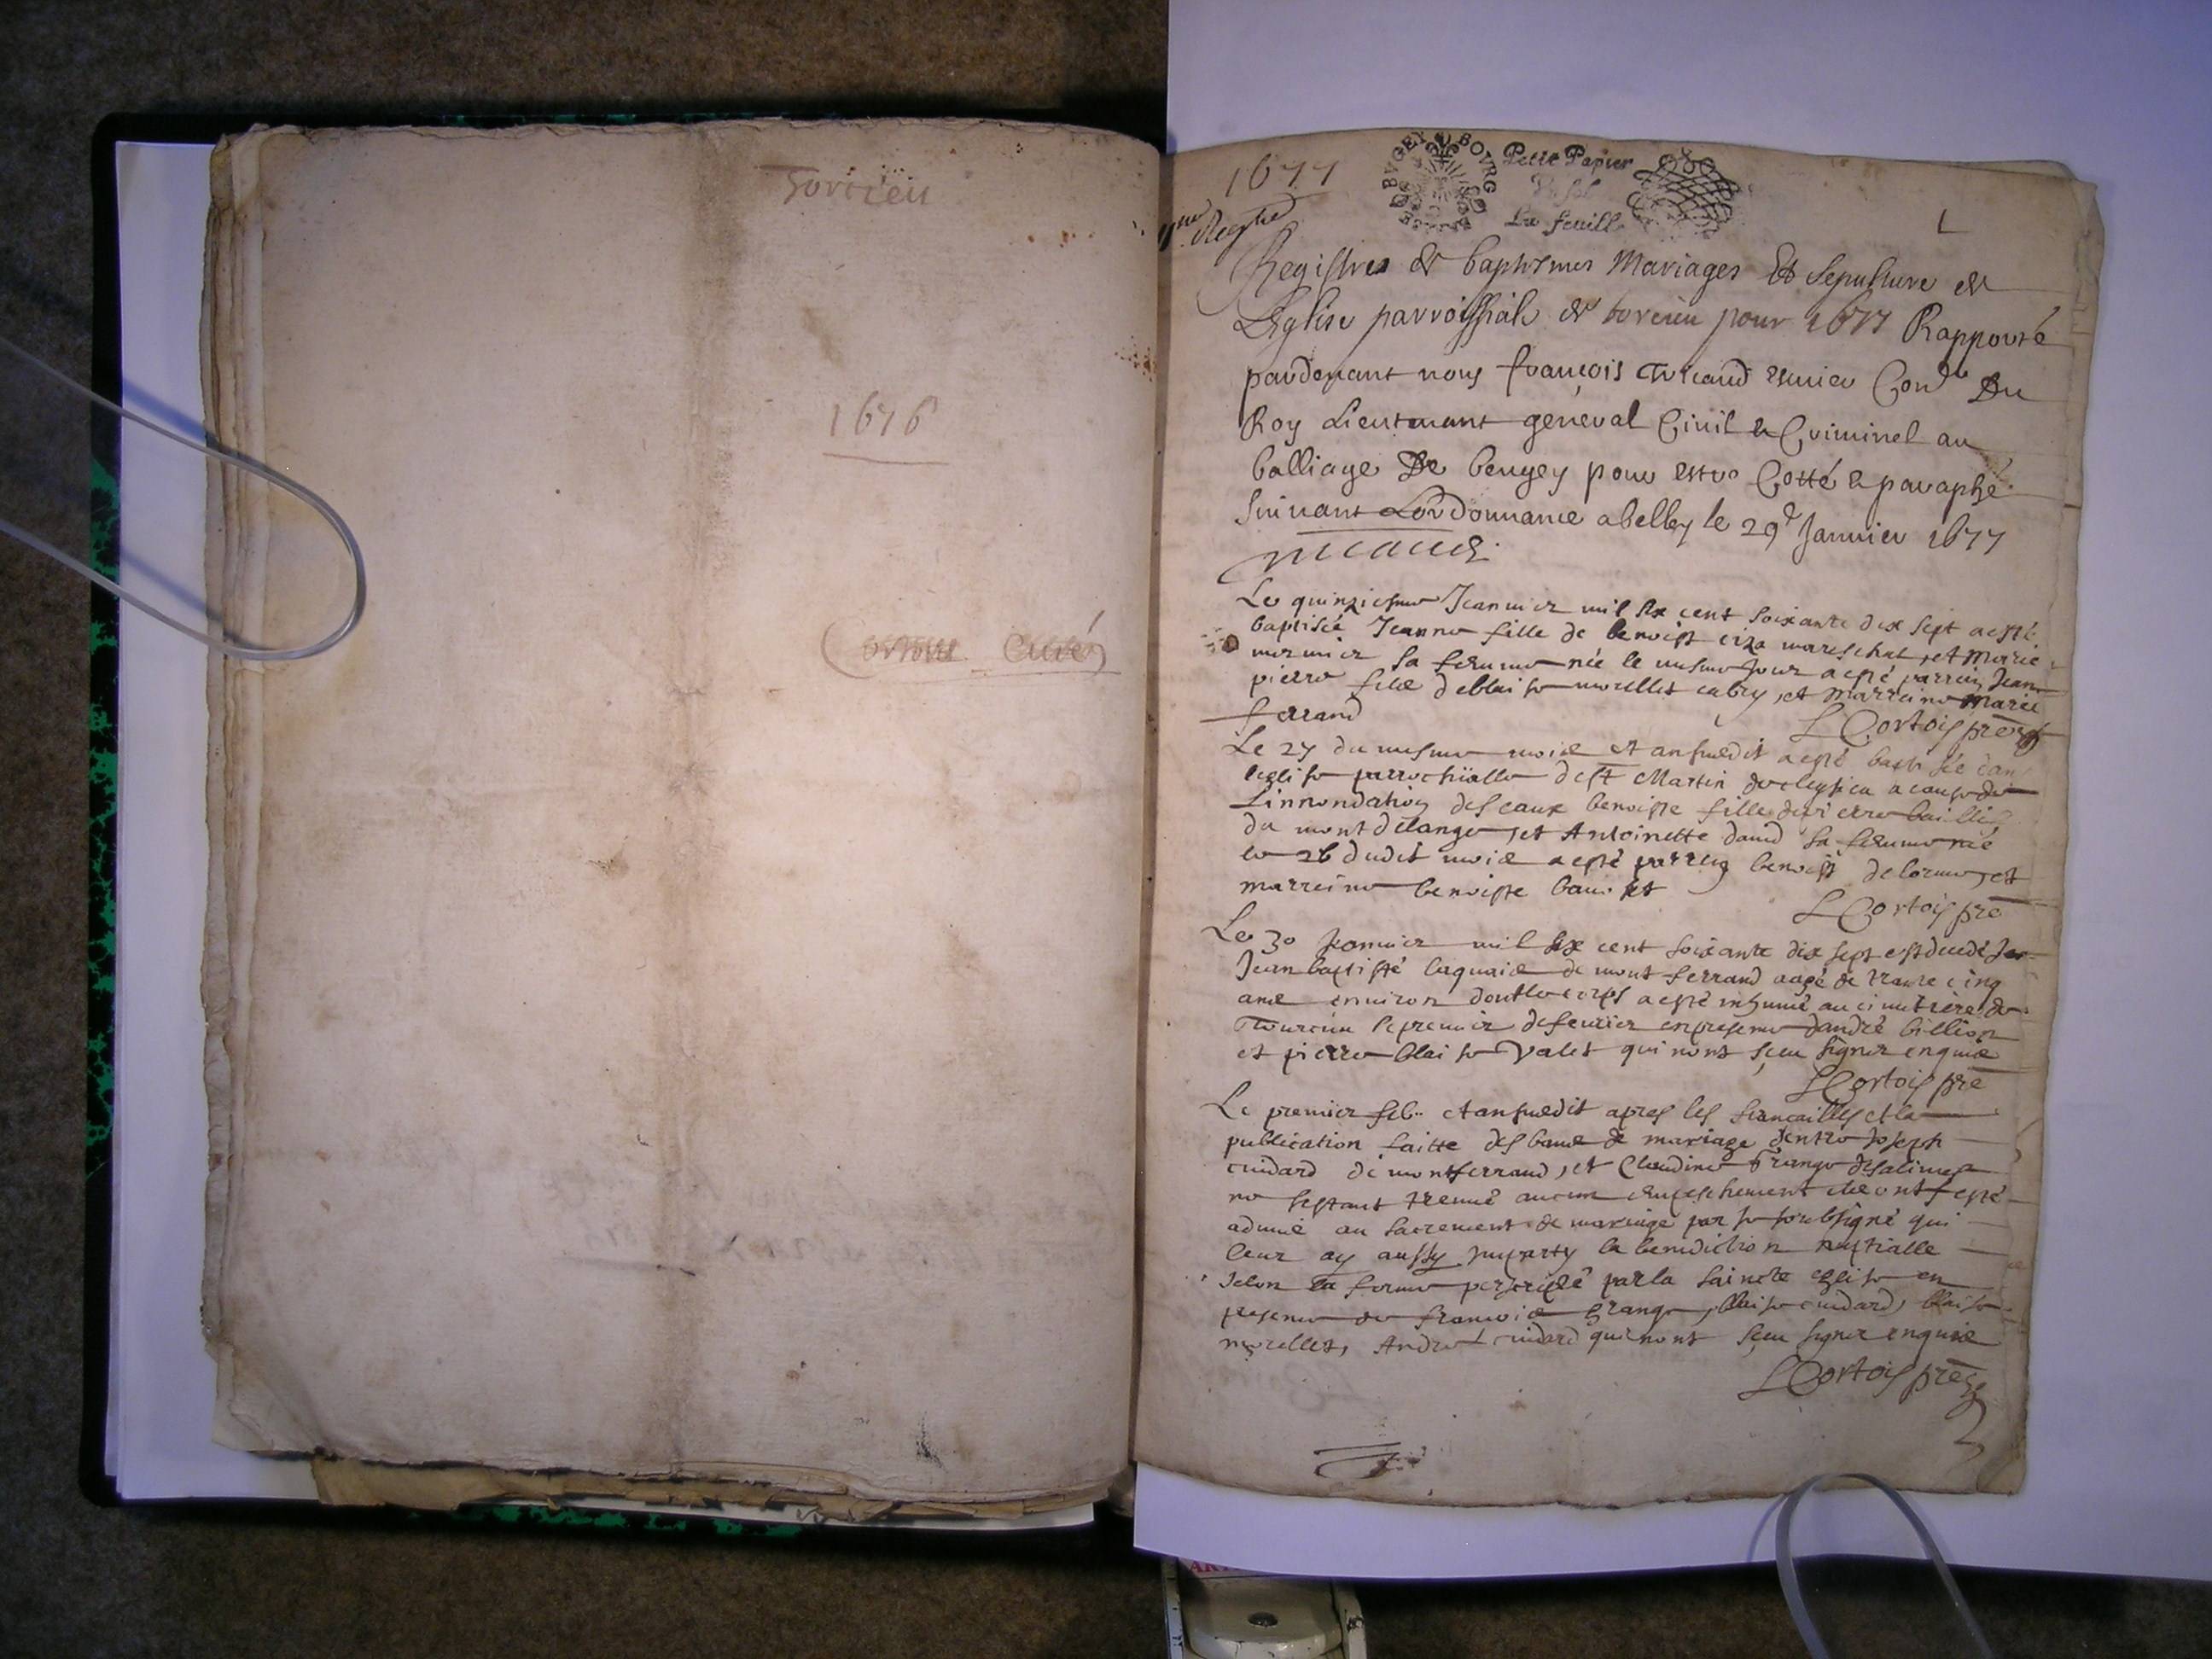 Torcieu
1676
Cortois Curé
1677
BVGEY BOVRG
Petit Papier
La feuill
1
Registres de baptesmes Mariages Et Sepulture de
L'Eglise parroissiale de torcieu pour 1677 Rapporté
pardevant nous françois escuier Conr Du
Roy Lieutenant general Civil & Criminel au
balliage De beugey pour estre Cotté & paraphé
suivant Lordonnance a belley le 29e Janvier 1677
Le quinziesme Jeanvier mil six cent soixante dix sept a esté
baptisée Jeanne fille de benoist mareschal, et Marie
mermier sa femme née le mesme jour a esté parrein Jean
pierre filz de blaise morellet, et marreine Marie
ferrand
L Cortois pre
Le 27 du mesme mois et an susdit a esté baptisée dans
leglise parrochialle de st Martin de cleysieu a cause de
Linnondation des eaux benoiste fille de pierre
du mont delange, et Antoinette david sa femme née
le 26 dudit mois a esté parrein benoist delorme, et
marreine benoiste
L Cortois pre
Le 30 Janvier mil six cent soixante dix sept est decedé
Jean baptiste laquais de mont ferrand aagé de trante cinq
ans environ dont le corps a esté inhumé au cimetiere de
Tourcieu le premier de fevrier en presence dandré billion
et pierre blaise Valet qui nont sceu signer enquis
L Cortois pre
Le premier feb. et an susdit apres les fiancailles et la
publication faitte des bans de mariage dentre Joseph
cuidard de montferrand, et Claudine Grange
ne sestant treuvé aucun empeschement ilz ont esté
admis au sacrement de mariage par le soubsigné qui
leur ay aussy imparty la benediction nuptialle
selon la forme perscripte par la saincte eglise en
presence de francois Grange, blaise cuidard, blaise
morellet, Andre cuidard qui nont sceu signer enquis
L Cortois pre